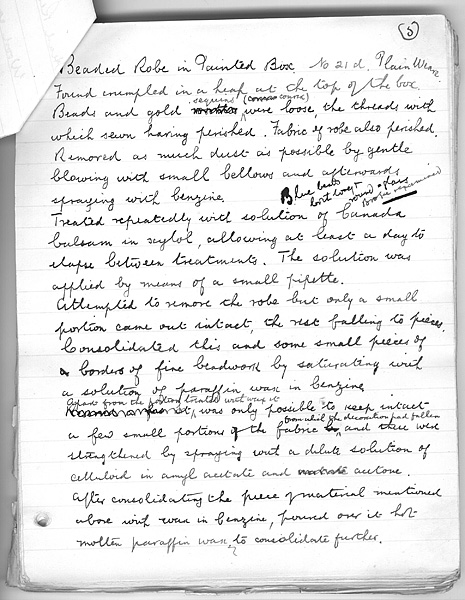 (5)
Beaded Robe in Painted Box No 21 d. Plain Weave
Found crumpled in a heap at the top of the box.
sequins
Beads and gold were loose, the threads with
which sewn having perished. Fabric of robe also perished.
Removed as much dust as possible by gentle
blowing with small bellows and afterwards
spraying with benzine.
Blue beads
Treated repeatedly with solution of Canada
balsam in xylol, allowing at least a day to
elapse between treatments. The solution was
applied by means of a small pipette.
Attempted to remove the robe but only a small
portion came out intact, the rest falling to pieces.
Consolidated this and some small pieces of
borders of fine beadwork by saturating with
a solution of paraffin wax in benzine
Apart from the portion treated with wax it
was only possible to keep intact
from which the decoration had fallen
a few small portions of the fabric and these were
strengthened by spraying with a dilute solution of
celluloid in amyl acetate and acetone.
After consolidating the piece of material mentioned
above with wax in benzine, poured over it hot
molten paraffin wax to consolidate further.